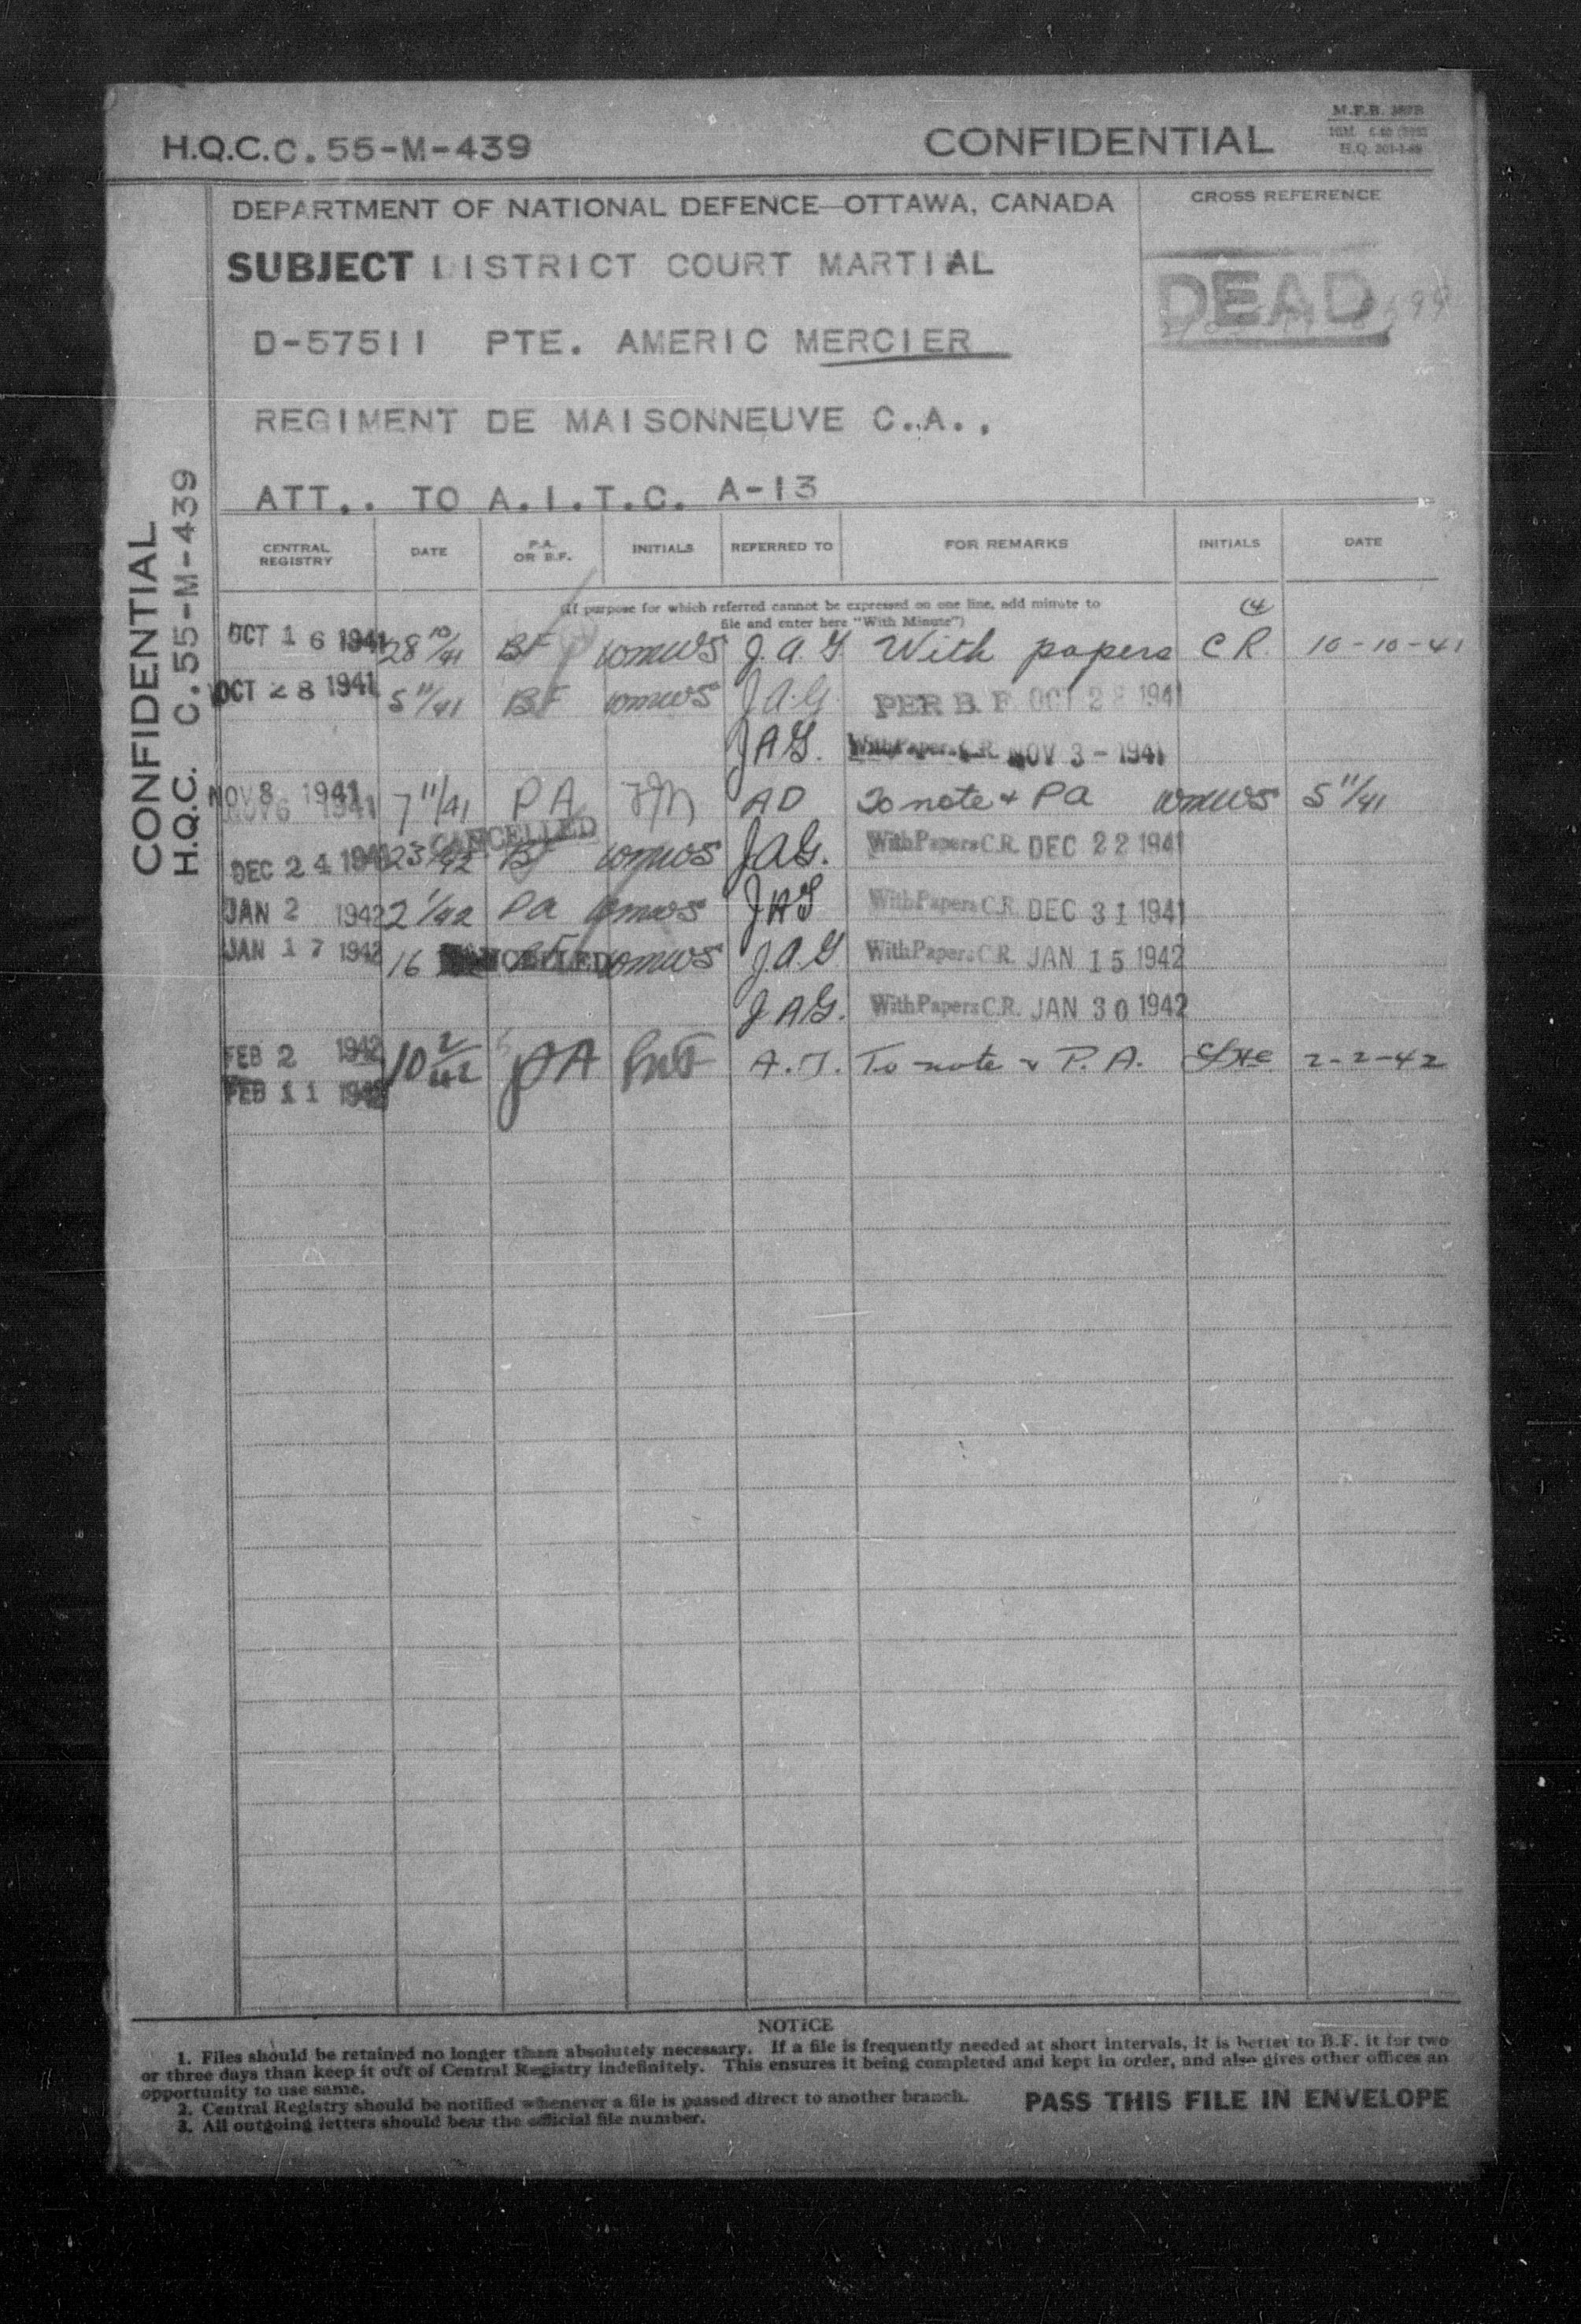 M.F.B.
H.Q.C. C.55-M-439 CONFIDENTIAL
H.Q.
DEPARTMENT OF NATIONAL DEFENCE—OTTAWA, CANADA
CROSS REFERENCE
SUBJECT DISTRICT COURT MARTIAL
DEAD
D-57511 PTE. AMERIC MERCIER
REGIMENT DE MAISONNEUVE C.A.,
ATT.. TO A.I.T.C. A-13
CONFIDENTIAL
H.Q.C. C.55-M-439
CENTRAL REGISTRY DATE P.A. OR B.F. INITIALS REFERRED TO FOR REMARKS INITIALS DATE
(If purpose for which referred cannot be expressed on one line, add minute to
file and enter here "With Minute")
OCT 16 1941 28 10/41 BF wmws J.A.G With papers C R. 10-10-41
OCT 28 1941 5 11/41 BF wmws J.A.G. PER B.F. OCT 28 1941
JAG. With Papers C.R. NOV 3 - 1941
NOV 8 1941 7 11/41 PA AD To note & PA wmws 5 11/41
NOV 6 1941
CANCELLED
DEC 24 1941 BF wmws JAG. With Papers C.R. DEC 22 1941
JAN 2 1942 2 1/42 PA wmws JAG With Papers C.R. DEC 31 1941
JAN 17 1942 16 CANCELLED wmws J.A.G With Papers C.R. JAN 15 1942
JAG. With Papers C.R. JAN 30 1942
FEB 2 1942 10 2/42 PA To note & P.A. 2-2-42
FEB 11 1942
NOTICE
1. Files should be retained no longer than absolutely necessary. If a file is frequently needed at short intervals, it is better to B.F. it for two
or three days than keep it out of Central Registry indefinitely. This ensures it being completed and kept in order, and also gives other offices an
opportunity to use same.
2. Central Registry should be notified whenever a file is passed direct to another branch.
3. All outgoing letters should bear the official file number.
PASS THIS FILE IN ENVELOPE